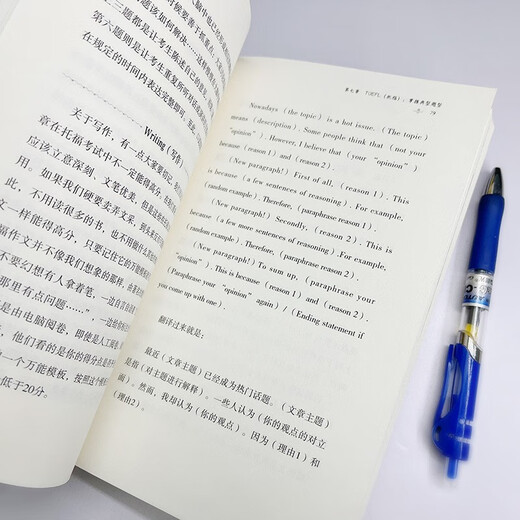 脑中也已经形
时候要善于抓重点。
题该如何解决……这样
三题都是让考生陈述自己的意见
第六题则是让考生重复所听对话或
在规定的时间内表达完整即可。
Writing（写作）
关于写作，有一点大家要切记，
章在托福考试中不一定能得高分，在
应该立意深刻、文笔优美，但是这
用。如果我们硬要卖弄文采，到头来
此，不用读很多的书，也不用做什么
样能得高分，只要记住它的万能模板
福作文并不像我们想象的那样，
不要幻想有人拿着笔，一边自言自语
那里有点问题……"，一边给你
是由电脑阅卷，即使是人工阅卷，
，他们看的是你的得分点是否
一个万能模板，按照这个
低于20分。
第七章 TOEFL（托福）：掌握典型题型
79
Nowadays (the topic) is a hot issue. (The topic)
means (description). Some people think that (not your
"opinion"). However, I believe that (your "opinion")
is because (reason 1) and (reason 2).
(New paragraph!) First of all, (reason 1). This
is because (a few sentences of reasoning). For example,
(random example). Therefore, (paraphrase reason 1).
(New paragraph!) Secondly, (reason 2). This is
because (a few more sentences of reasoning). For example,
(random example). Therefore, (paraphrase reason 2).
(New paragraph!) To sum up, (paraphrase your
"opinion"). This is because (reason 1) and (reason 2).
(Paraphrase your "opinion" again) / (Ending statement if
you come up with one).
翻译过来就是：
最近（文章主题）已经成为热门话题。（文章主题）
是指（对主题进行解释）。一些人认为（你的观点的对立
面）。然而，我却认为（你的观点）。因为（理由1）和
（理由2）。